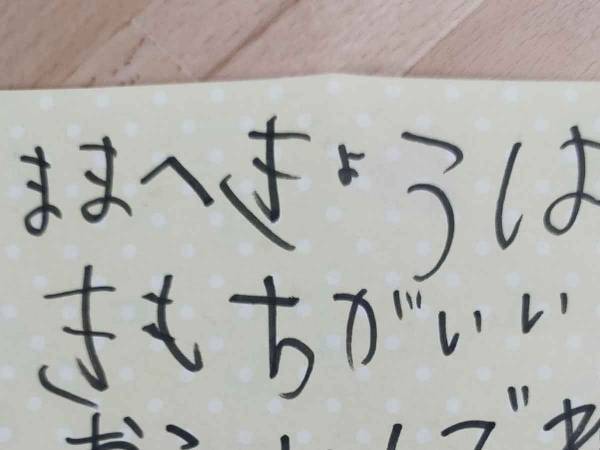 ままへきょうは
きもちがいい